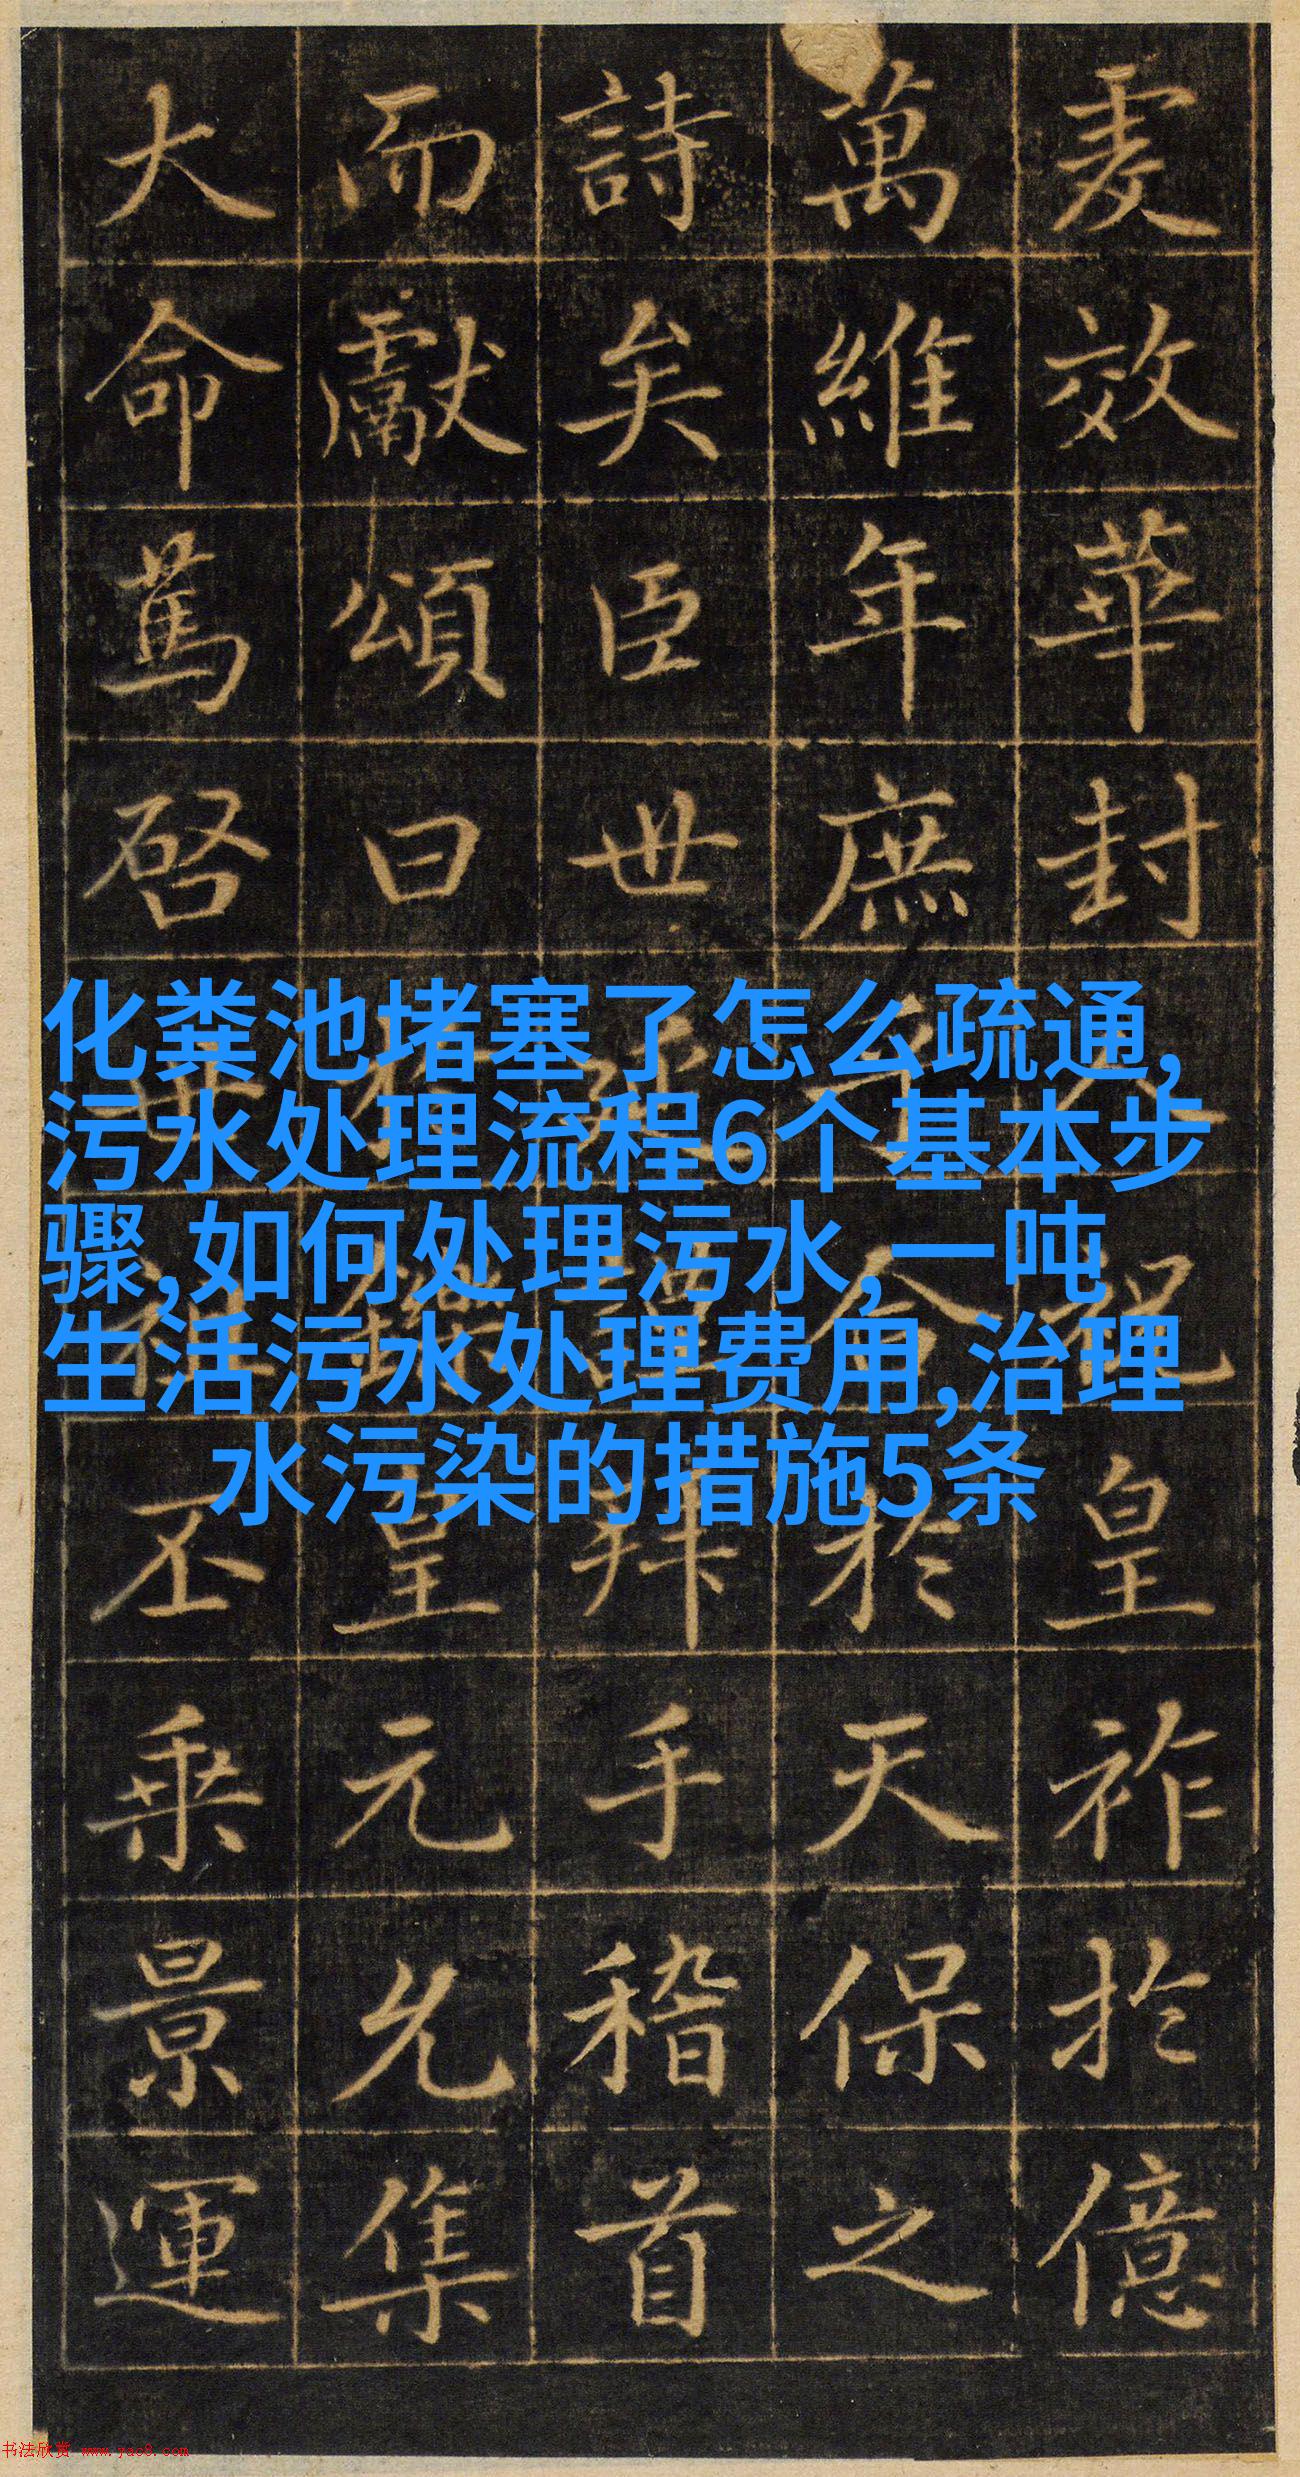 虔效華封人祝皇祚於億
萬維年庶合於天保之
詩矣臣世延謹拜手稽首
而獻頌曰於鑠皇元允集
大命篤啓世祖丕乘景運
化粪池堵塞了怎么疏通,
污水处理流程6个基本步
骤,如何处理污水,一吨
生活污水处理费用,治理
水污染的措施5条
书法欣赏 www.yac8.com